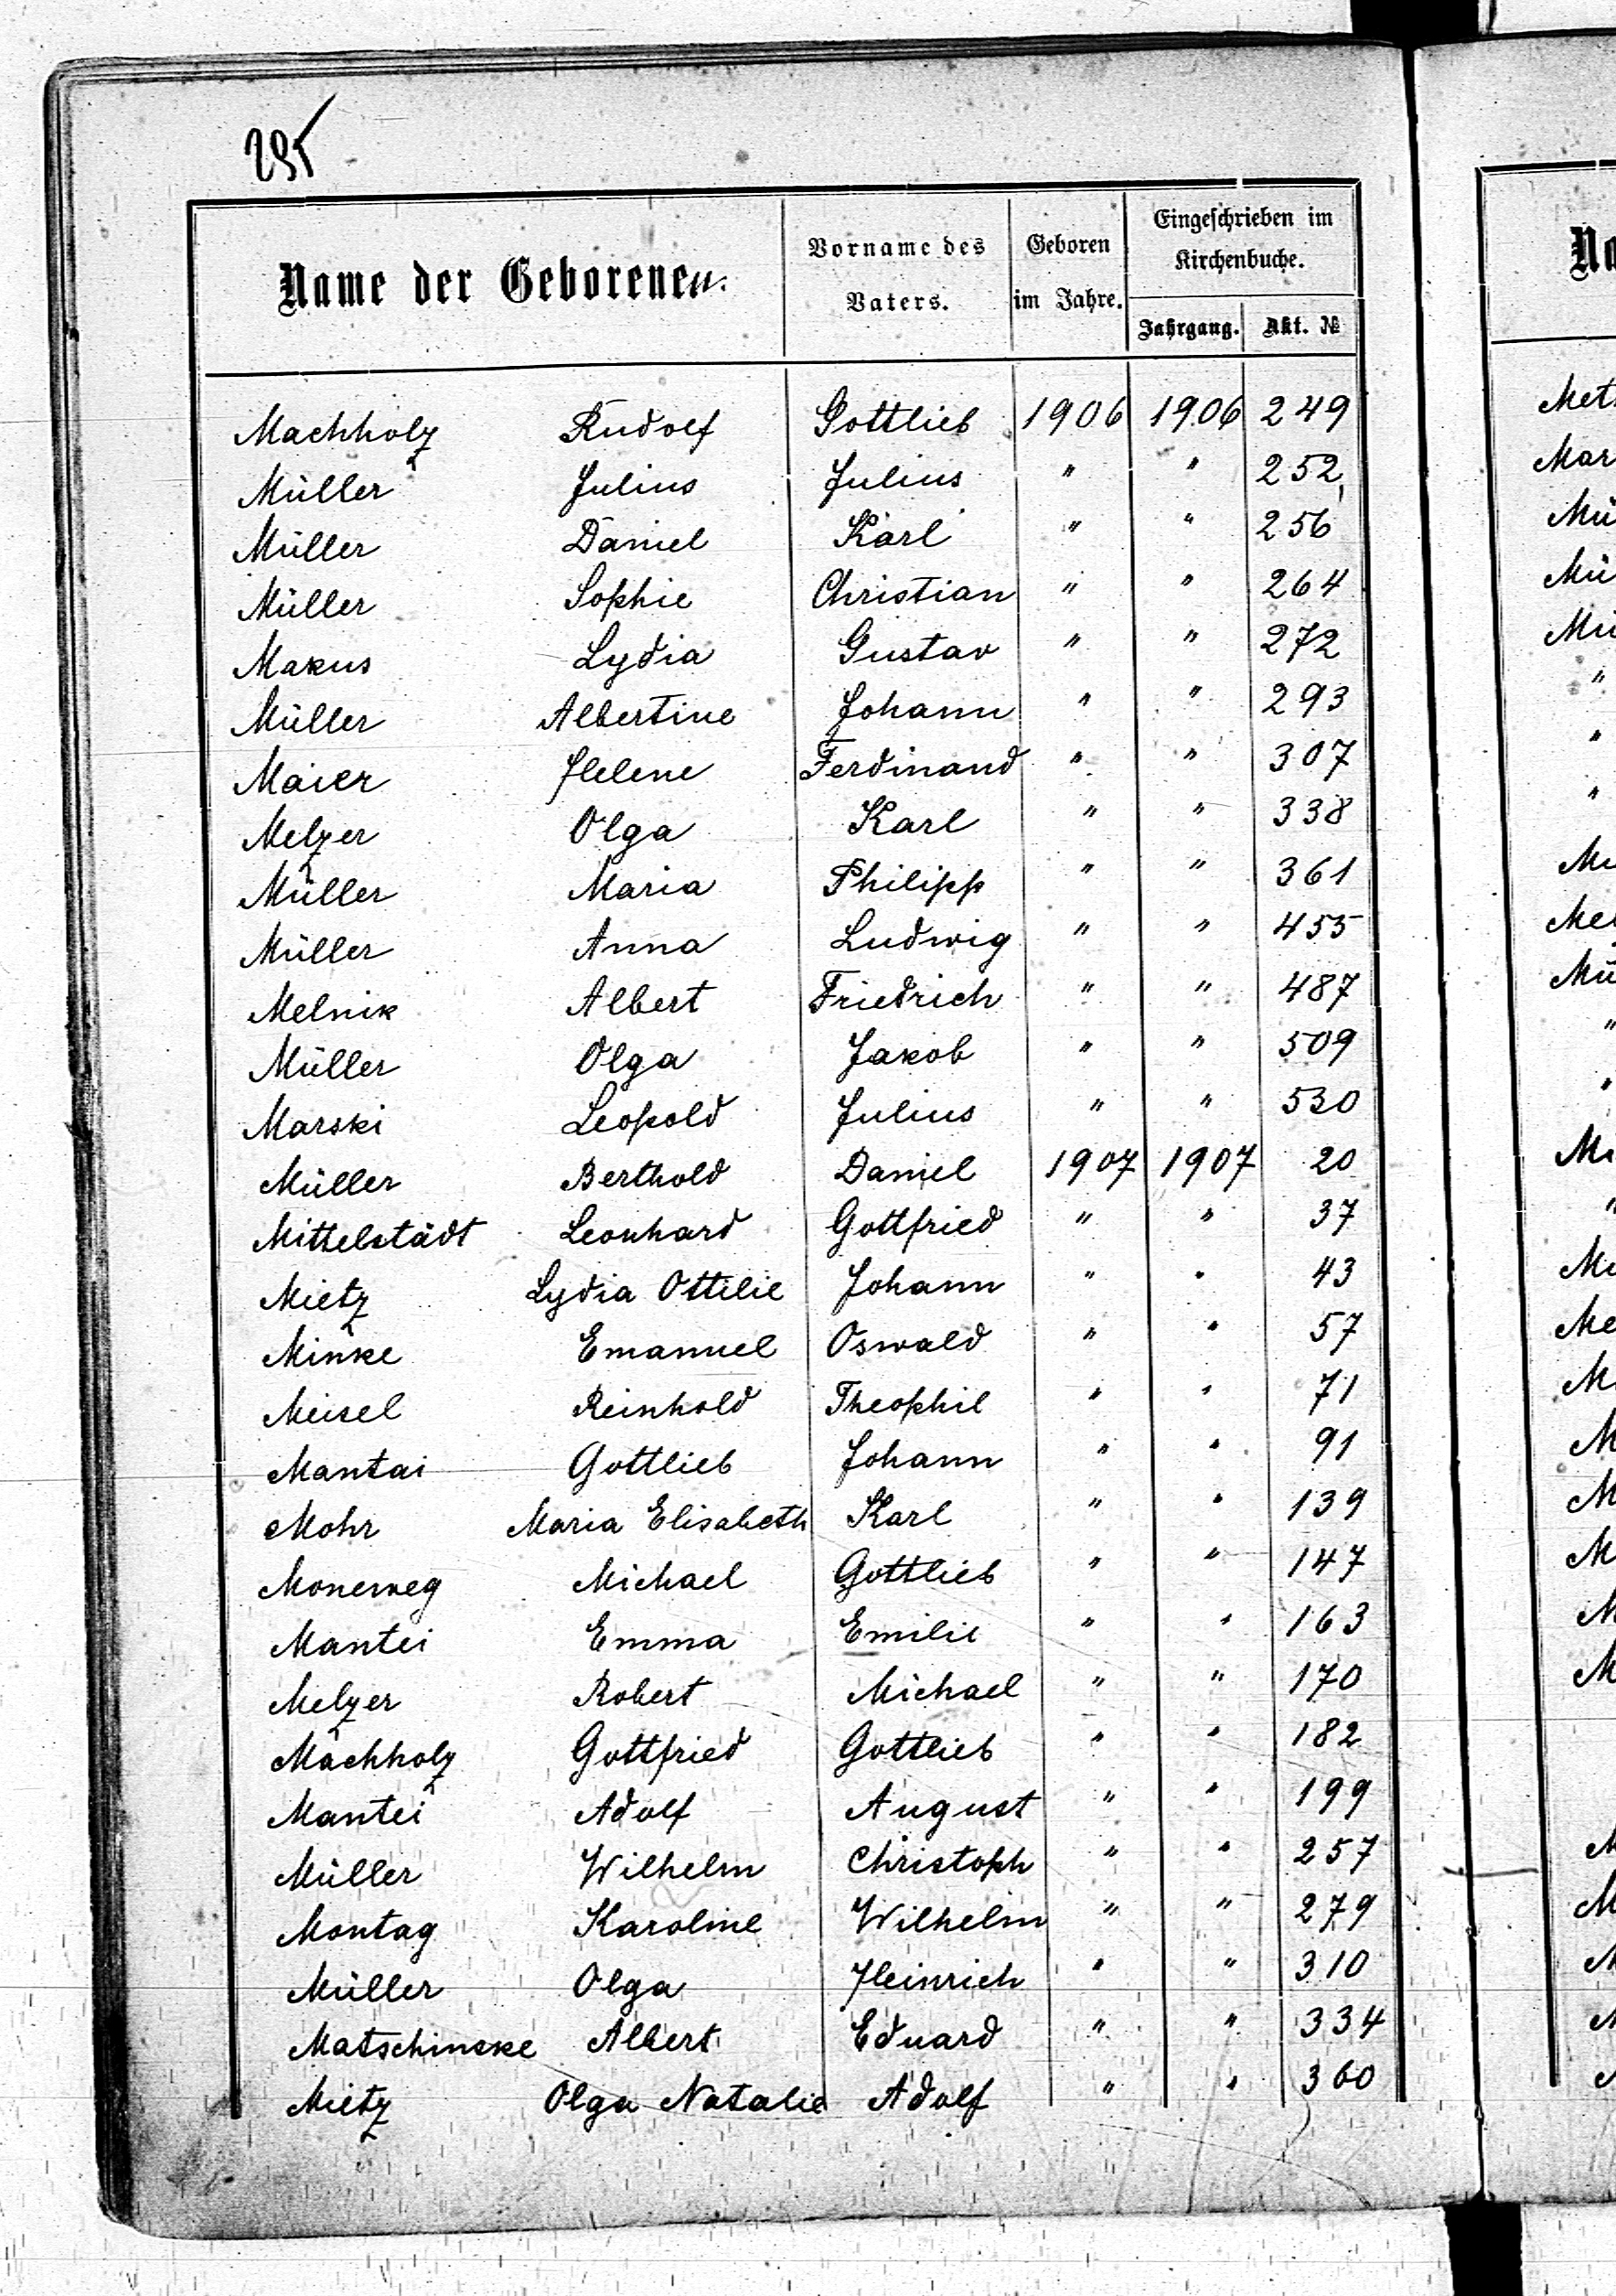 295
Name der Geborenen.
Vorname des Vaters.
Geboren im Jahre.
Eingeschrieben im Kirchenbuche.
Jahrgang. Akt. №
Machholz Rudolf Gottlieb 1906 1906 249
Müller Julius Julius " " 252
Müller Daniel Karl " " 256
Müller Sophie Christian " " 264
Makus Lydia Gustav " " 272
Müller Albertine Johann " " 293
Maier Helene Ferdinand " " 307
Melzer Olga Karl " " 338
Müller Maria Philipp " " 361
Müller Anna Ludwig " " 455
Melnik Albert Friedrich " " 487
Müller Olga Jakob " " 509
Marski Leopold Julius " " 530
Müller Berthold Daniel 1907 1907 20
Mittelstädt Leonhard Gottfried " " 37
Mietz Lydia Ottilie Johann " " 43
Minke Emanuel Oswald " " 57
Meisel Reinhold Theophil " " 71
Mantai Gottlieb Johann " " 91
Mohr Maria Elisabeth Karl " " 139
Monerweg Michael Gottlieb " " 147
Mantei Emma Emilie " " 163
Melzer Robert Michael " " 170
Machholz Gottfried Gottlieb " " 182
Mantei Adolf August " " 199
Müller Wilhelm Christoph " " 257
Montag Karoline Wilhelm " " 279
Müller Olga Heinrich " " 310
Matschinske Albert Eduard " " 334
Mietz Olga Natalie Adolf " " 360